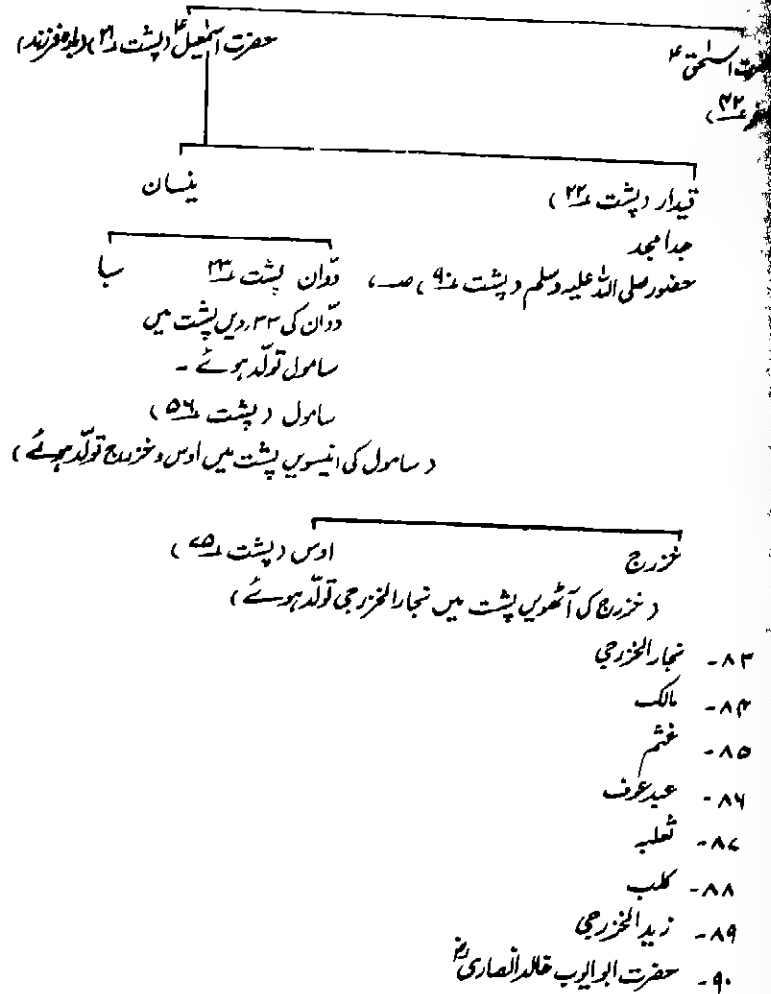 حضرت اسمٰعیلؑ (پشت ۲۱) (بڑا فرزند)
اسحٰقؑ
(۴۲
قیدار (پشت ۲۲)
ینسان
جدا مجد
حضور صلی اللہ علیہ وسلم (پشت ۹۰) صـ،
دوّان پشت ۲۳
سبا
دوّان کی ۳۳ ویں پشت میں
سامول تولّد ہوئے ۔
سامول (پشت ۵۶)
(سامول کی انیسویں پشت میں اوس و خزرج تولّد ہوئے)
خزرج
اوس (پشت ۷۵)
(خزرج کی آٹھویں پشت میں نجار الخزرجی تولّد ہوئے)
۸۳- نجار الخزرجی
۸۴- مالک
۸۵- غثم
۸۶- عبد عوف
۸۷- ثعلبہ
۸۸- کلب
۸۹- زید الخزرجی
۹۰- حضرت ابو ایوب خالد انصاریؓ